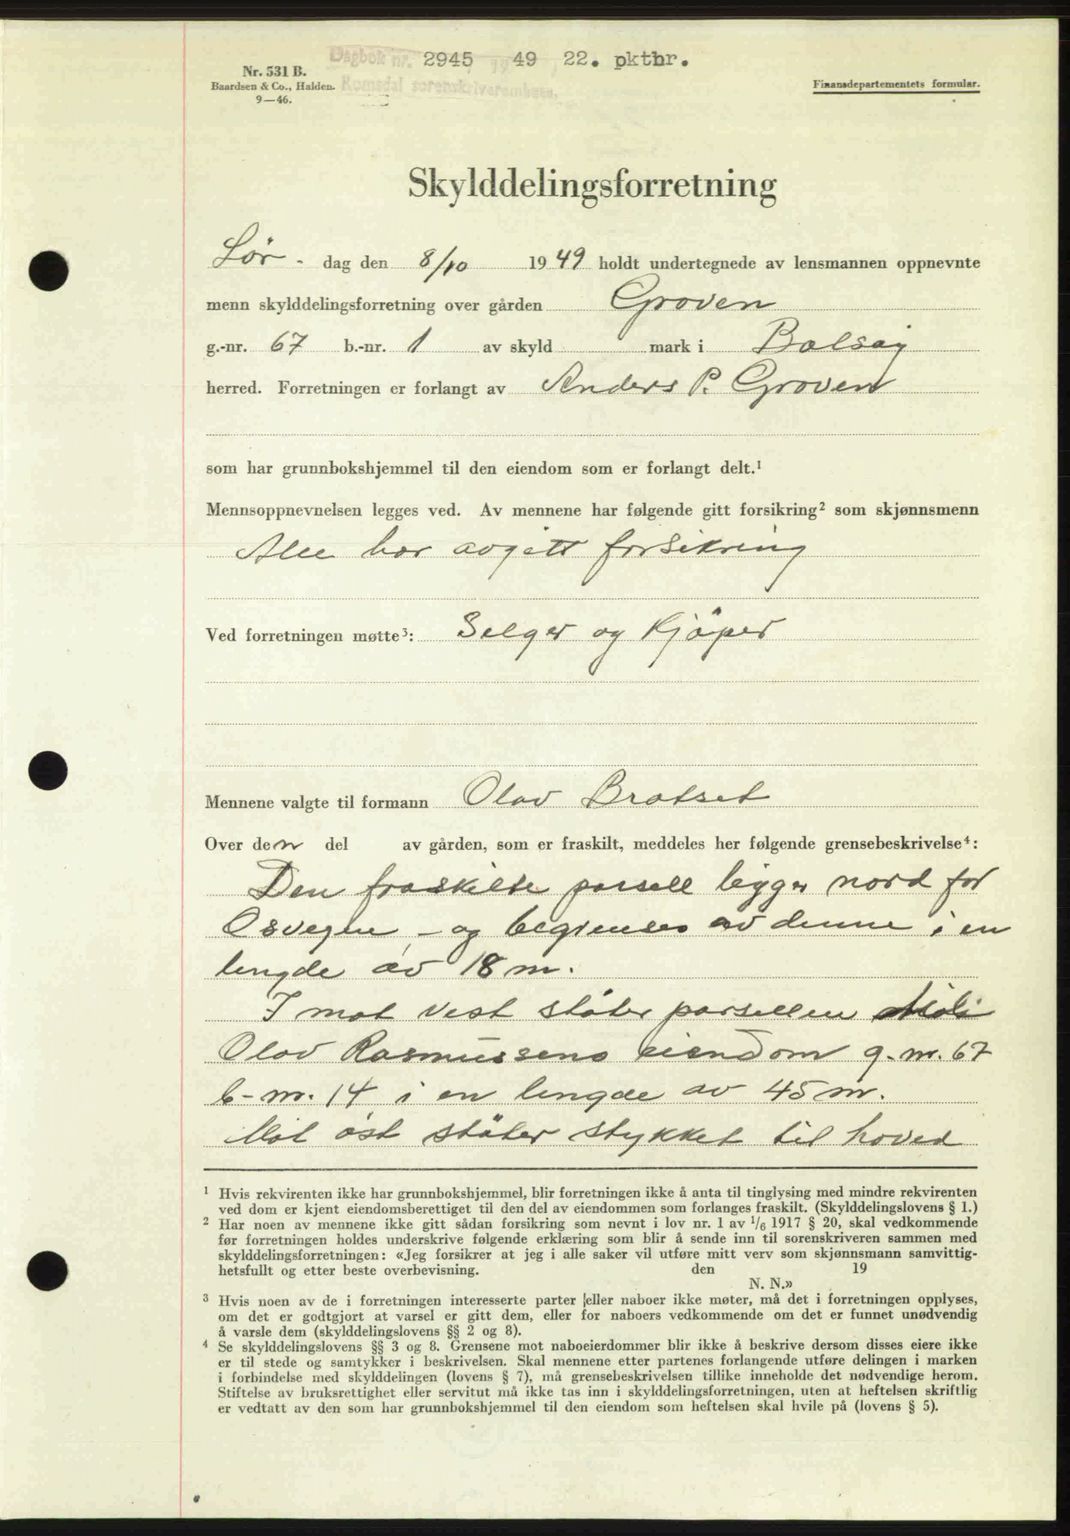 Dagbok nr. 2945 49 22. pktbr.
Romsdal sorenskriverembete.
Nr. 531 B.
Baardsen & Co., Halden.
9—46.
Finansdepartementets formular.
Skylddelingsforretning
Lør- dag den 8/10 1949 holdt undertegnede av lensmannen oppnevnte
menn skylddelingsforretning over gården Groven
g.-nr. 67 b.-nr. 1 av skyld mark i Bolsøy
herred. Forretningen er forlangt av Anders P. Groven
som har grunnbokshjemmel til den eiendom som er forlangt delt.¹
Mennsoppnevnelsen legges ved. Av mennene har følgende gitt forsikring² som skjønnsmenn
Alle har avgitt forsikring
Ved forretningen møtte³: Selger og Kjöper
Mennene valgte til formann Olav Bratset
Over den del av gården, som er fraskilt, meddeles her følgende grensebeskrivelse⁴:
Den fraskilte parsell ligger nord for
Osvegen - og begrenses av denne i en
lengde av 18 m.
I mot vest stöter parsellen
Olav Rasmussens eiendom g-nr. 67
b-nr. 14 i en lengde av 45 m.
Mot öst stöter stykket til hoved
¹ Hvis rekvirenten ikke har grunnbokshjemmel, blir forretningen ikke å anta til tinglysing med mindre rekvirenten
ved dom er kjent eiendomsberettiget til den del av eiendommen som forlanges fraskilt. (Skylddelingslovens § 1.)
² Har noen av mennene ikke gitt sådan forsikring som nevnt i lov nr. 1 av 1/6 1917 § 20, skal vedkommende
før forretningen holdes underskrive følgende erklæring som blir å sende inn til sorenskriveren sammen med
skylddelingsforretningen: «Jeg forsikrer at jeg i alle saker vil utføre mitt verv som skjønnsmann samvittig-
hetsfullt og etter beste overbevisning. den 19
N. N.»
³ Hvis noen av de i forretningen interesserte parter eller naboer ikke møter, må det i forretningen opplyses,
om det er godtgjort at varsel er gitt dem, eller for naboers vedkommende om det er funnet unødvendig
å varsle dem (skylddelingslovens §§ 2 og 8).
⁴ Se skylddelingslovens §§ 3 og 8. Grensene mot naboeierdommer blir ikke å beskrive dersom disses eiere ikke
er til stede og samtykker i beskrivelsen. Skal mennene etter partenes forlangende utføre delingen i marken
i forbindelse med skylddelingen (lovens § 7), må grensebeskrivelsen tillike inneholde det nødvendige herom.
Stiftelse av bruksrettighet eller servitut må ikke tas inn i skylddelingsforretningen, uten at heftelsen skriftlig
er vedtatt av den som har grunnbokshjemmel til den eiendom som heftelsen skal hvile på (lovens § 5).